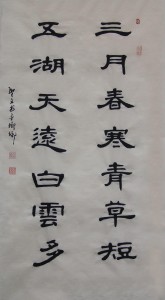 三月春寒青草短
五湖天遠白雲多